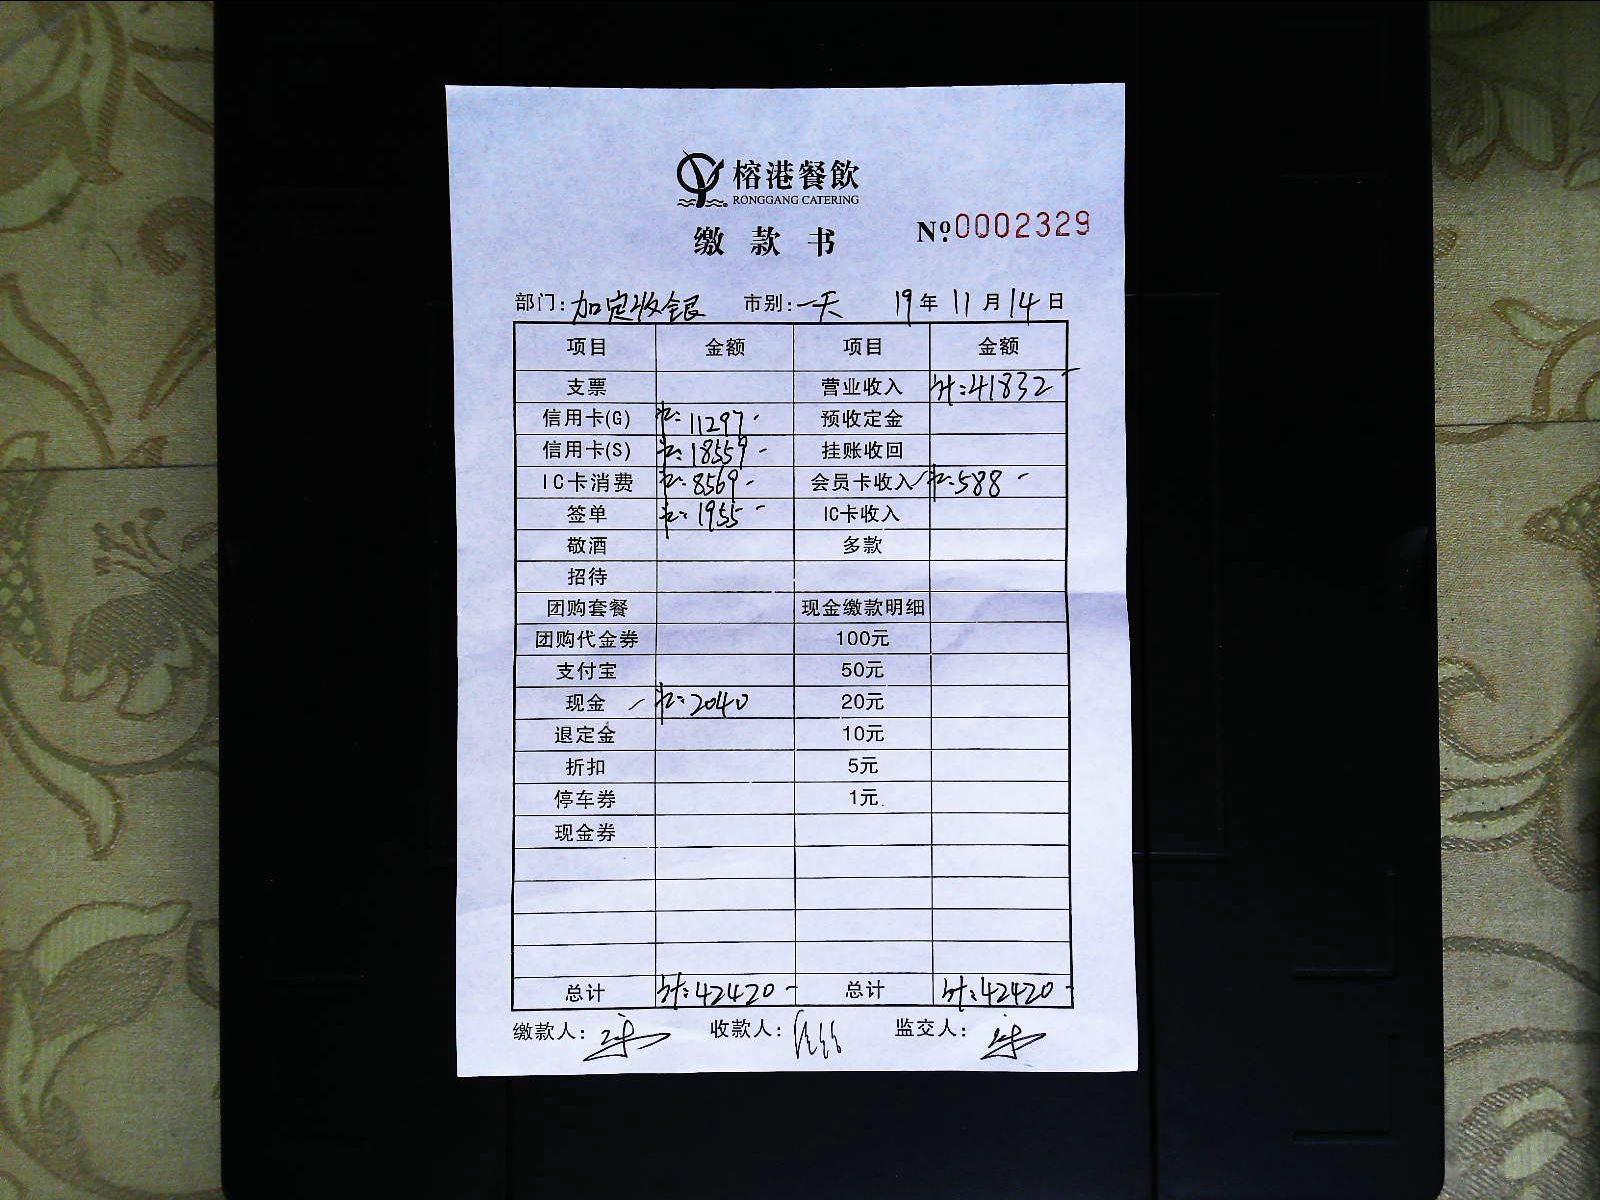 榕港餐飲
RONGGANG CATERING
缴款书 Nº.0002329
部门: 加定收银 市别: 一天 19年 11月14日
项目 金额 项目 金额
支票 营业收入 计:41832-
信用卡(G) 11297- 预收定金
信用卡(S) 18559- 挂账收回
IC卡消费 8569- 会员卡收入 588-
签单 1955- IC卡收入
敬酒 多款
招待
团购套餐 现金缴款明细
团购代金券 100元
支付宝 50元
现金 2040 20元
退定金 10元
折扣 5元
停车券 1元
现金券
总计 计:42420- 总计 计:42420-
缴款人: 收款人: 监交人: